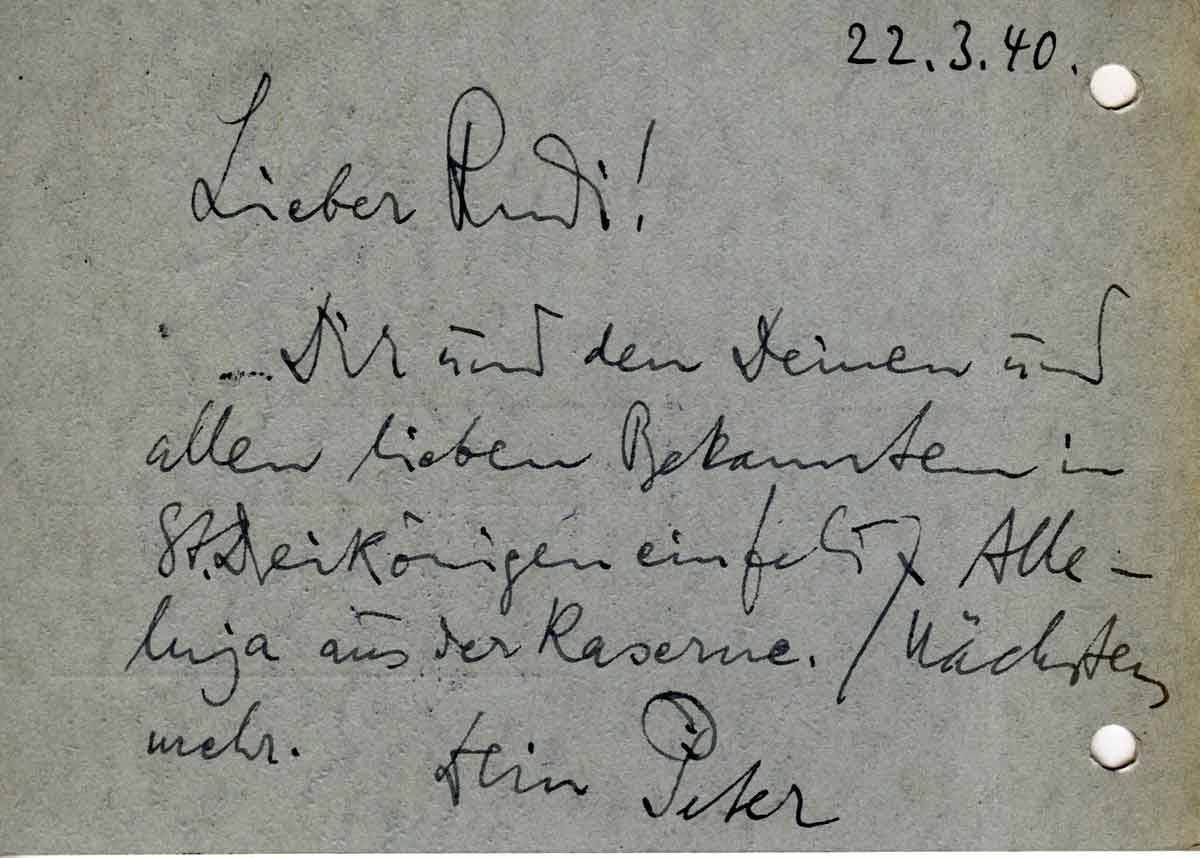 22.3.40.
Lieber Rudi!
Dir und den Deinen und
allen lieben Bekannten in
St. Dreikönigen ein frohes Alle-
luja aus der Kaserne. / Nächstens
mehr. Dein Peter